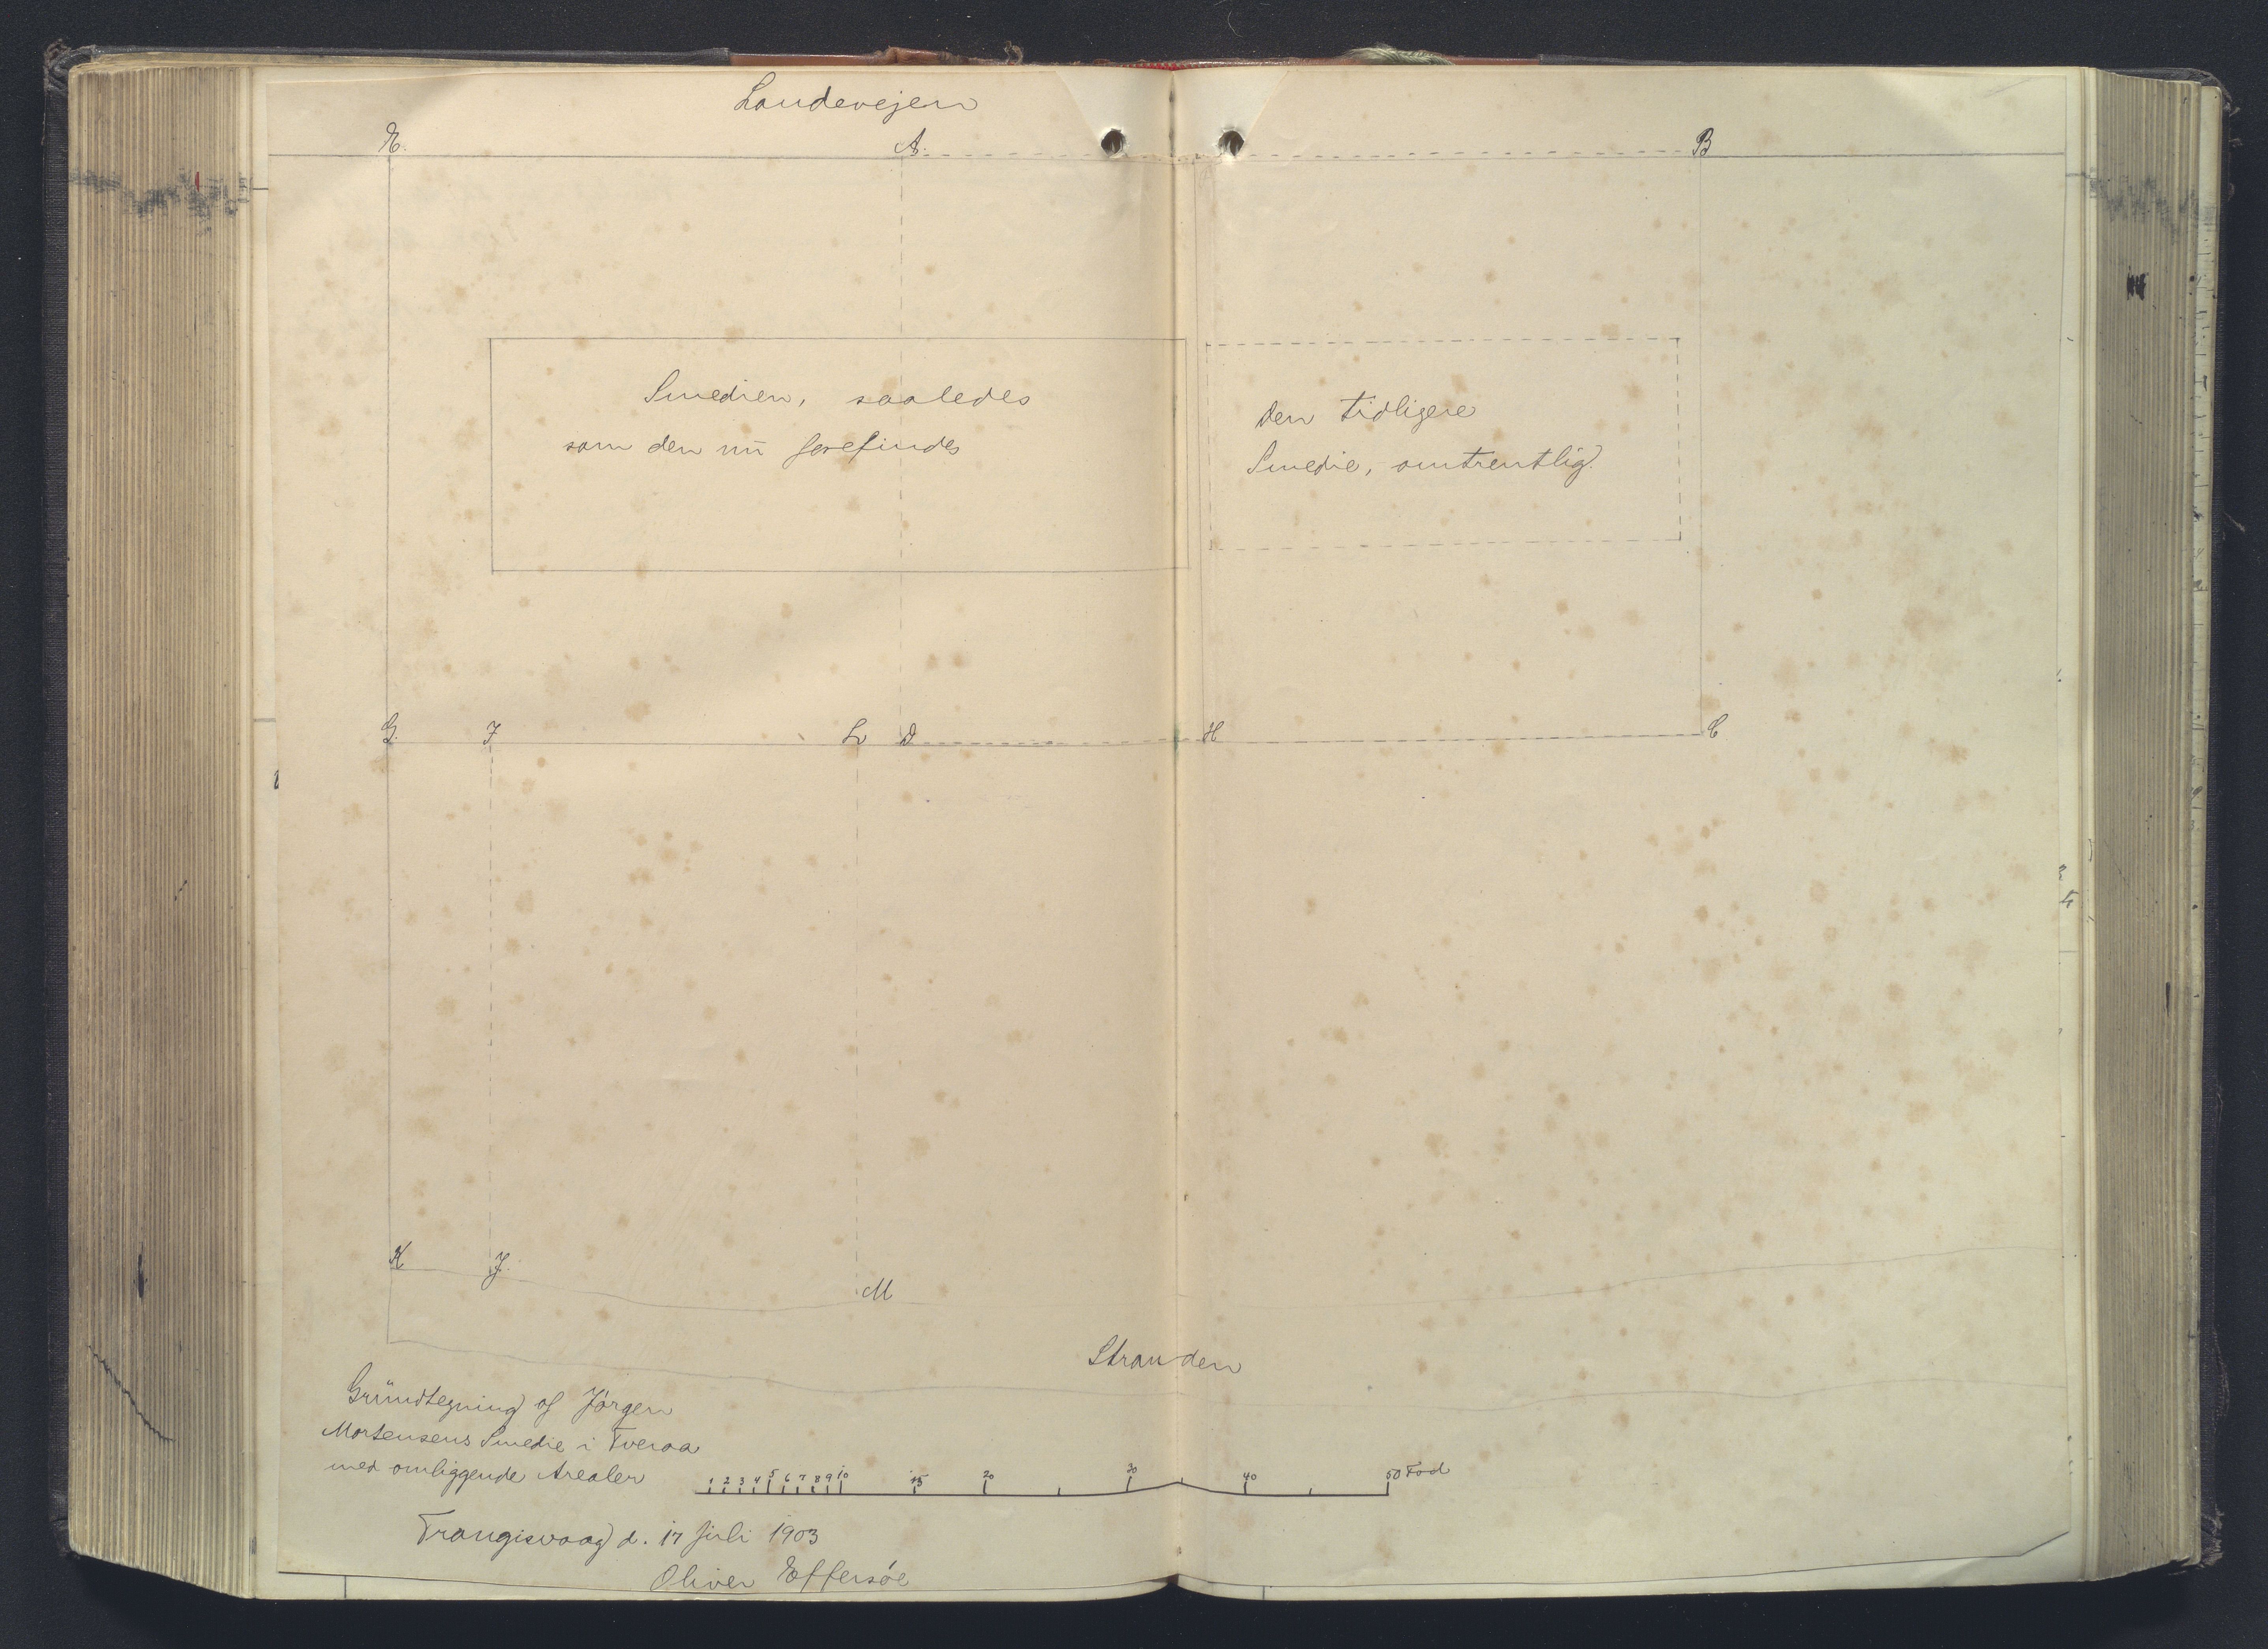 Landevejen
E. A. B
Smedien, saaledes
som den nu forefindes
den tidligere
Smedie, omtrentlig.
G. I L D H C
K J. M
Stranden
Grundtegning af Jörgen
Mortensens Smedie i Tveraa
med omliggende Arealer
1 2 3 4 5 6 7 8 9 10 15 20 30 40 50 Fod
Trangisvaag d. 17 Juli 1903
Oliver Effersöe